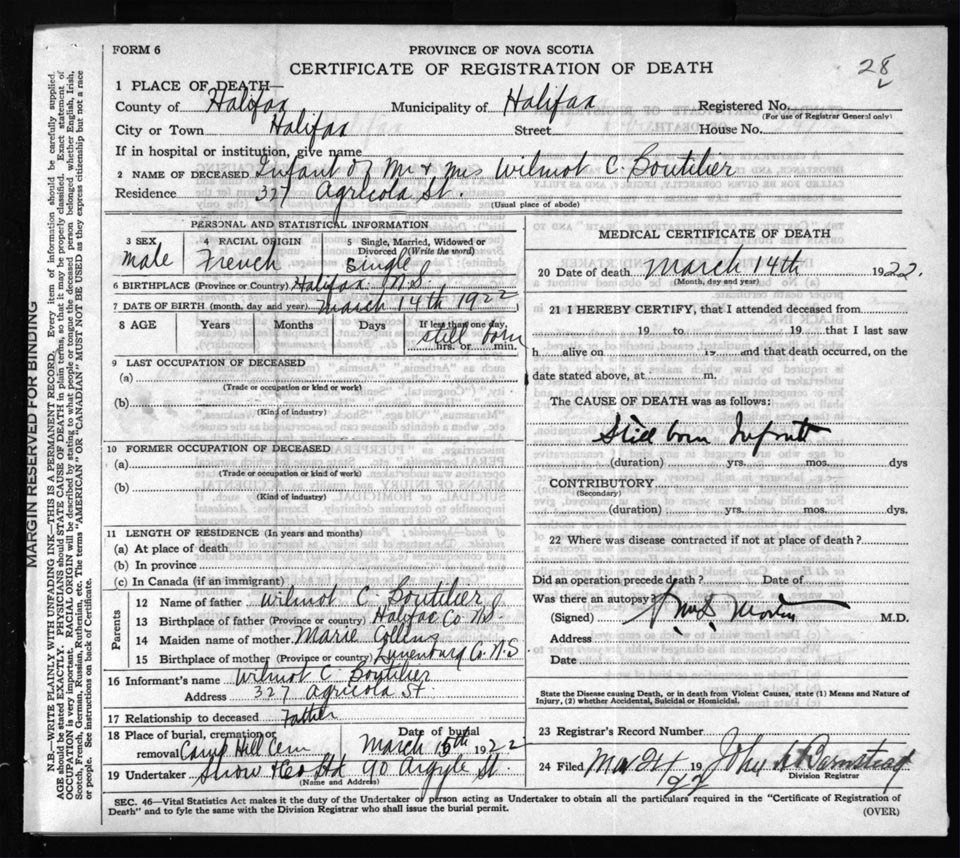 FORM 6
PROVINCE OF NOVA SCOTIA
28
CERTIFICATE OF REGISTRATION OF DEATH
1 PLACE OF DEATH—
County of Halifax Municipality of Halifax Registered No.
(For use of Registrar General only)
City or Town Halifax Street House No.
If in hospital or institution, give name
2 NAME OF DECEASED Infant of Mr & Mrs Wilmot C. Boutilier
Residence 327 Agricola St.
(Usual place of abode)
PERSONAL AND STATISTICAL INFORMATION
3 SEX 4 RACIAL ORIGIN 5 Single, Married, Widowed or
Divorced (Write the word)
Male French Single
6 BIRTHPLACE (Province or Country) Halifax N.S.
7 DATE OF BIRTH (month, day and year) March 14th 1922
8 AGE Years Months Days If less than one day,
still born
hrs. or min.
9 LAST OCCUPATION OF DECEASED
(a)
(Trade or occupation or kind or work)
(b)
(Kind of industry)
10 FORMER OCCUPATION OF DECEASED
(a)
(Trade or occupation or kind of work)
(b)
(Kind of industry)
11 LENGTH OF RESIDENCE (In years and months)
(a) At place of death
(b) In province
(c) In Canada (if an immigrant)
Parents
12 Name of father Wilmot C. Boutilier
13 Birthplace of father (Province or country) Halifax Co N.S.
14 Maiden name of mother Marie Collens
15 Birthplace of mother (Province or country) Lunenburg Co. N.S.
16 Informant's name Wilmot C. Boutilier
Address 327 Agricola St.
17 Relationship to deceased Father
18 Place of burial, cremation or Date of burial
removal Camp Hill Cem March 15th 1922
19 Undertaker Snow & Co Ltd 90 Argyle St.
(Name and Address)
MEDICAL CERTIFICATE OF DEATH
20 Date of death March 14th 1922.
(Month, day and year)
21 I HEREBY CERTIFY, that I attended deceased from
19 to 19 that I last saw
h alive on 19 and that death occurred, on the
date stated above, at m.
The CAUSE OF DEATH was as follows:
Still born Infant
(duration) yrs. mos. dys
CONTRIBUTORY
(Secondary)
(duration) yrs. mos. dys.
22 Where was disease contracted if not at place of death?
Did an operation precede death? Date of
Was there an autopsy?
(Signed) M.D.
Address
Date
State the Disease causing Death, or in death from Violent Causes, state (1) Means and Nature of
Injury, (2) whether Accidental, Suicidal or Homicidal.
23 Registrar's Record Number
24 Filed Mar 24 1922 John Barnstead
Division Registrar
SEC. 46—Vital Statistics Act makes it the duty of the Undertaker or person acting as Undertaker to obtain all the particulars required in the "Certificate of Registration of
Death" and to fyle the same with the Division Registrar who shall issue the burial permit.
(OVER)
MARGIN RESERVED FOR BINDING
N.B.—WRITE PLAINLY WITH UNFADING INK—THIS IS A PERMANENT RECORD. Every item of information should be carefully supplied.
AGE should be stated EXACTLY. PHYSICIANS should STATE CAUSE OF DEATH in plain terms, so that it may be properly classified. Exact statement of
OCCUPATION is very important. RACIAL ORIGIN will be described by stating to what people or tongue the deceased person belonged whether English, Irish,
Scotch, French, German, Russian, Ruthenian, etc. The terms "AMERICAN" OR "CANADIAN" MUST NOT BE USED as they express citizenship but not a race
or people. See instructions on back of Certificate.